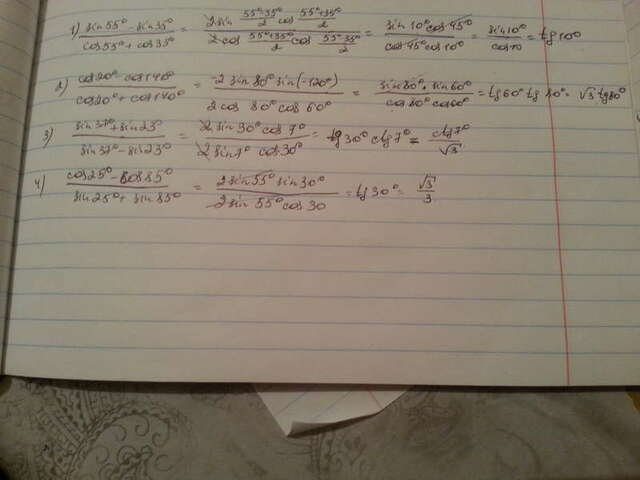 1) (sin 55° - sin 35°)/(cos 55° + cos 35°) = (2 sin (55°-35°)/2 cos (55°+35°)/2)/(2 cos (55°+35°)/2 cos (55°-35°)/2) = (sin 10° cos 45°)/(cos 45° cos 10°) = sin 10°/cos 10 = tg 10°
2) (cos 20° - cos 140°)/(cos 20° + cos 140°) = (-2 sin 80° sin(-120°))/(2 cos 80° cos 60°) = (sin 80° · sin 60°)/(cos 80° cos 60°) = tg 60° tg 80° = √3 tg 80°
3) (sin 37° + sin 23°)/(sin 37° - sin 23°) = (2 sin 30° cos 7°)/(2 sin 7° cos 30°) = tg 30° ctg 7° = ctg 7°/√3
4) (cos 25° - cos 85°)/(sin 25° + sin 85°) = (2 sin 55° sin 30°)/(2 sin 55° cos 30) = tg 30° = √3/3